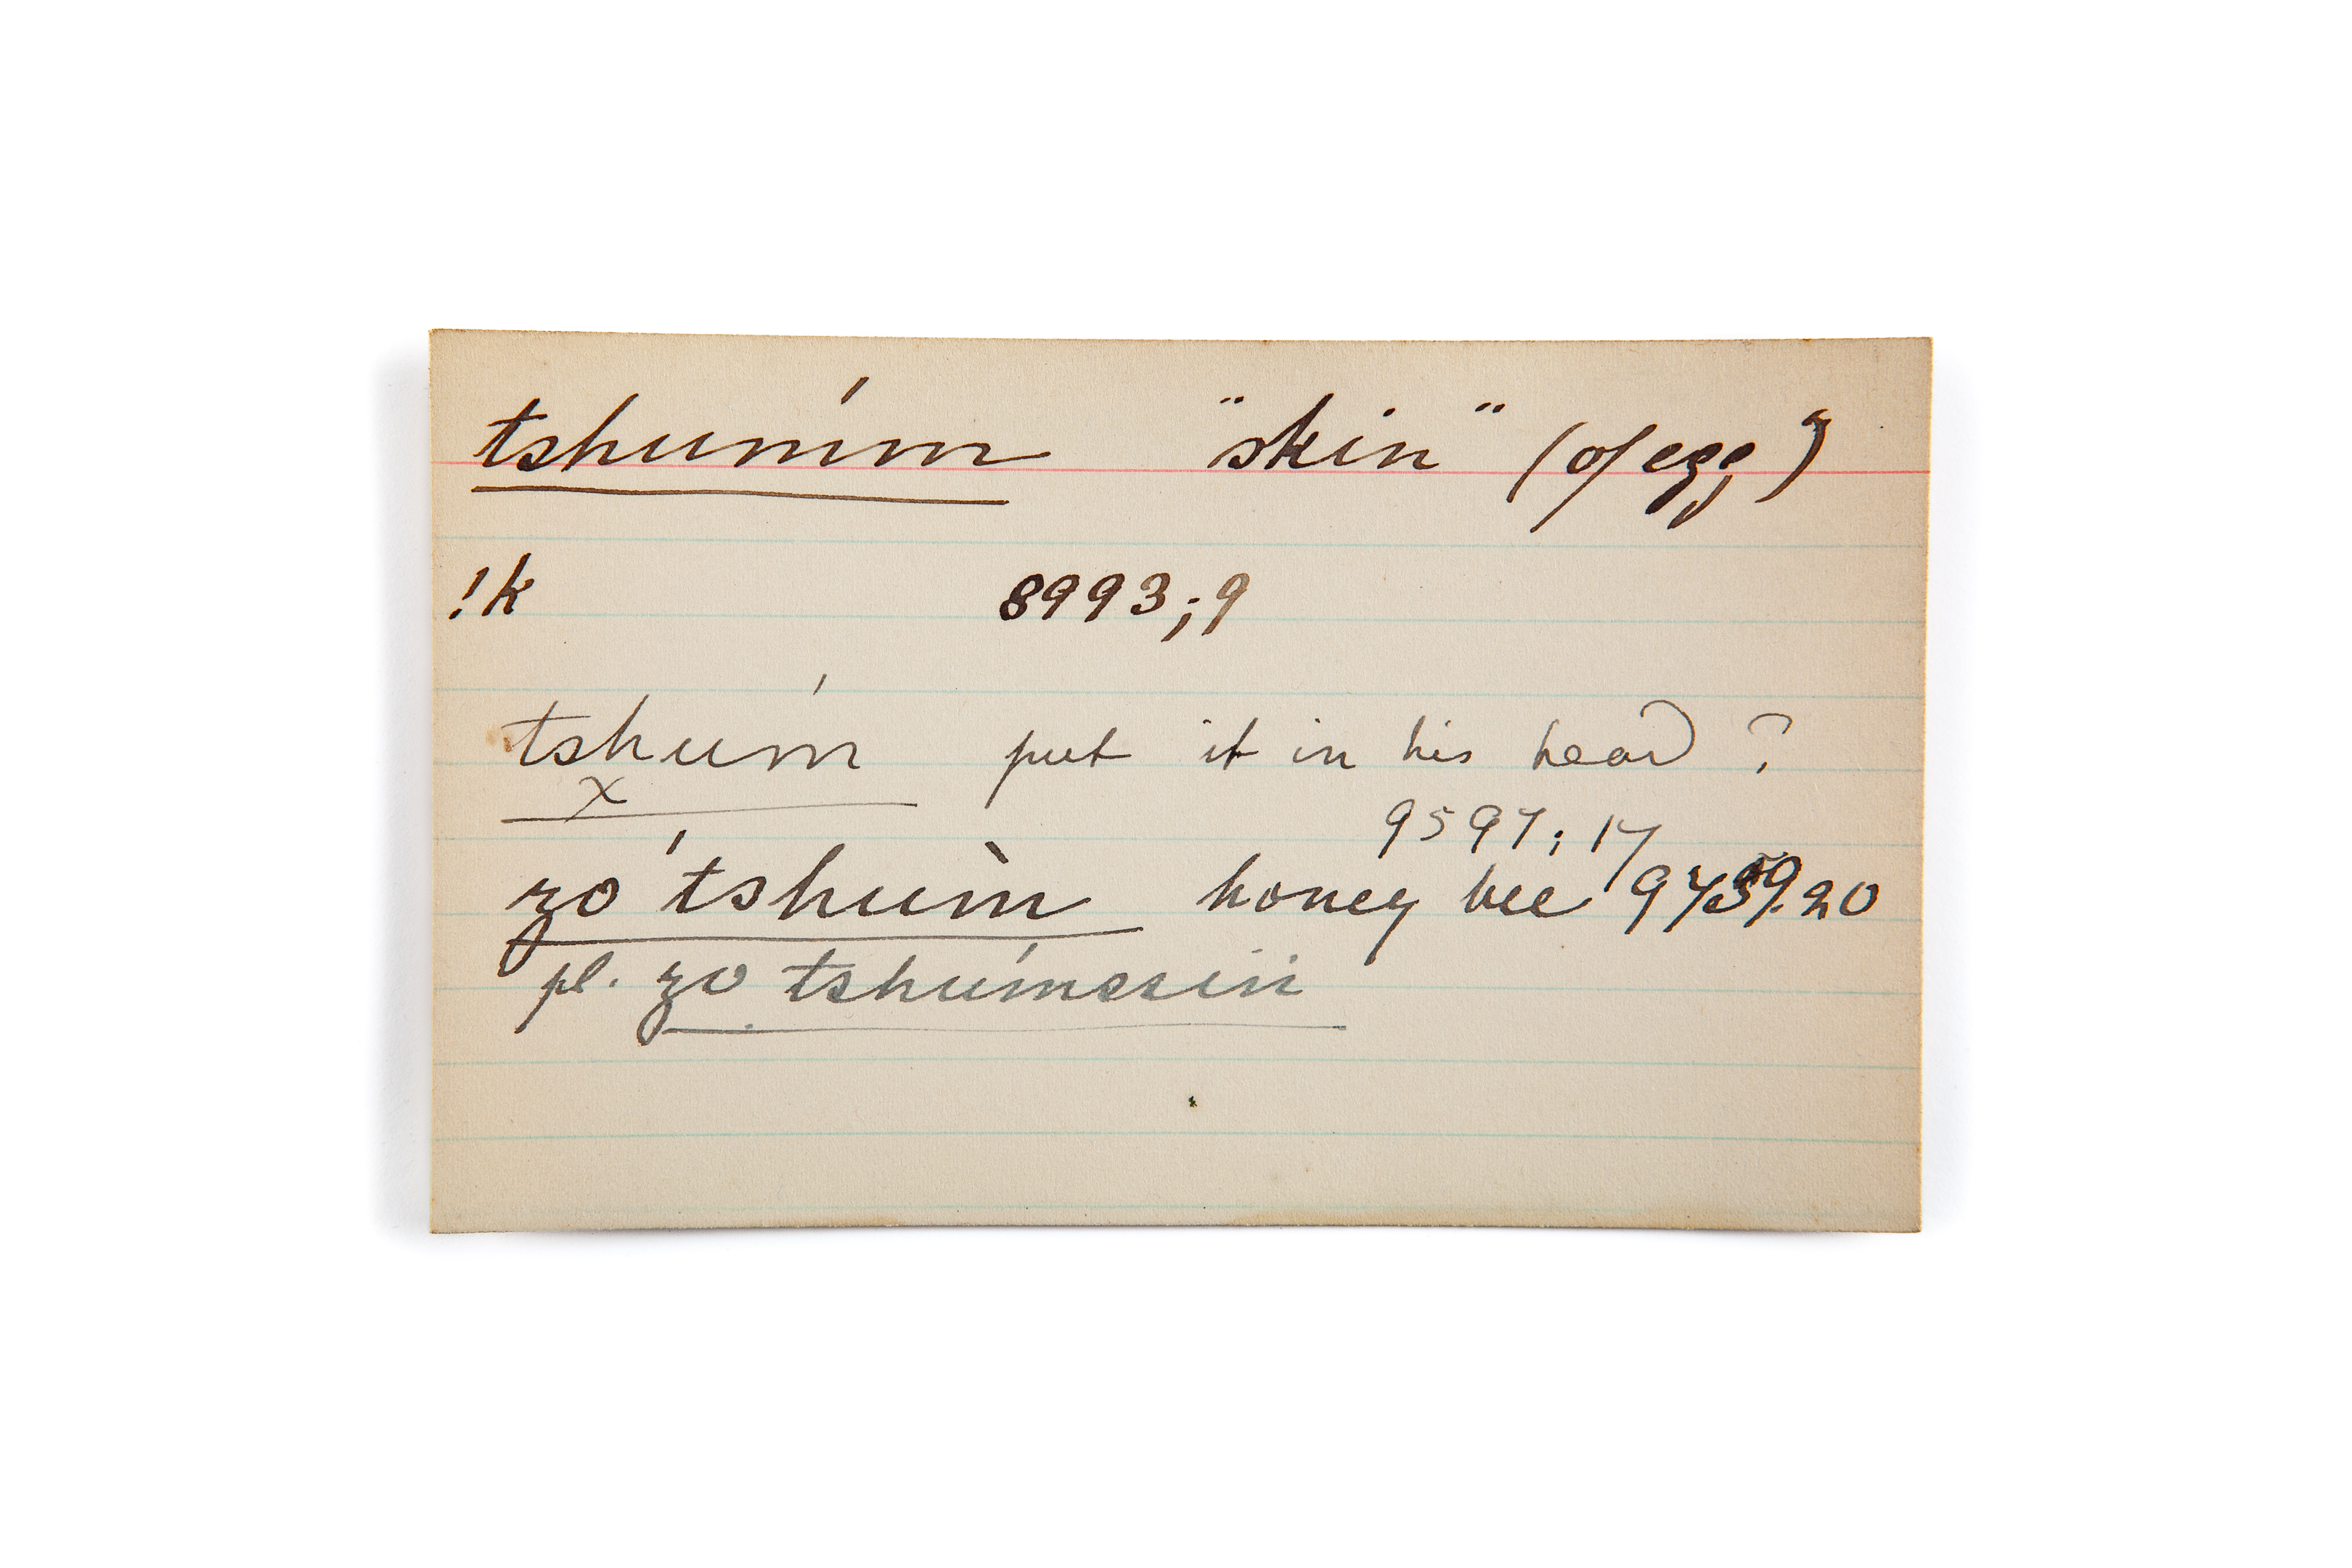 tshumḿ "skin" (of egg)
!k 8993;9
tshuḿ put it in his head ?
x
9597; 17
zó tshum̀ honey bee 20
pl. zo tshúmssin